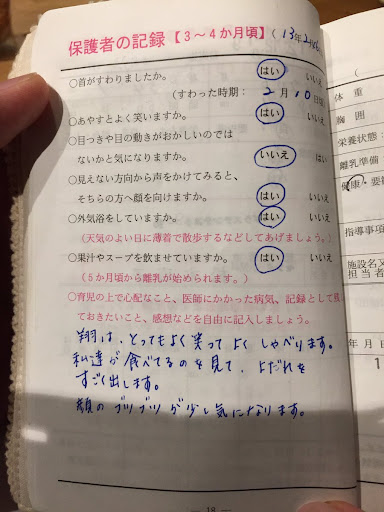 保護者の記録【3～4か月頃】(13年2月
○首がすわりましたか。 はい いいえ
(すわった時期: 2月10日頃)
○あやすとよく笑いますか。 はい いいえ
○目つきや目の動きがおかしいのでは
ないかと気になりますか。 いいえ はい
○見えない方向から声をかけてみると、
そちらの方へ顔を向けますか。 はい いいえ
○外気浴をしていますか。 はい いいえ
(天気のよい日に薄着で散歩するなどしてあげましょう。)
○果汁やスープを飲ませていますか。 はい いいえ
(5か月頃から離乳が始められます。)
○育児の上で心配なこと、医師にかかった病気、記録として残
ておきたいこと、感想などを自由に記入しましょう。
翔は、とってもよく笑って よく しゃべります。
私達が食べてるのを見て、よだれを
すごく出します。
顔の ブツブツ が少し気になります。
— 18 —
体重
胸囲
栄養状態:
離乳準備
健康・要
指導事項
施設名又
担当者
年月日